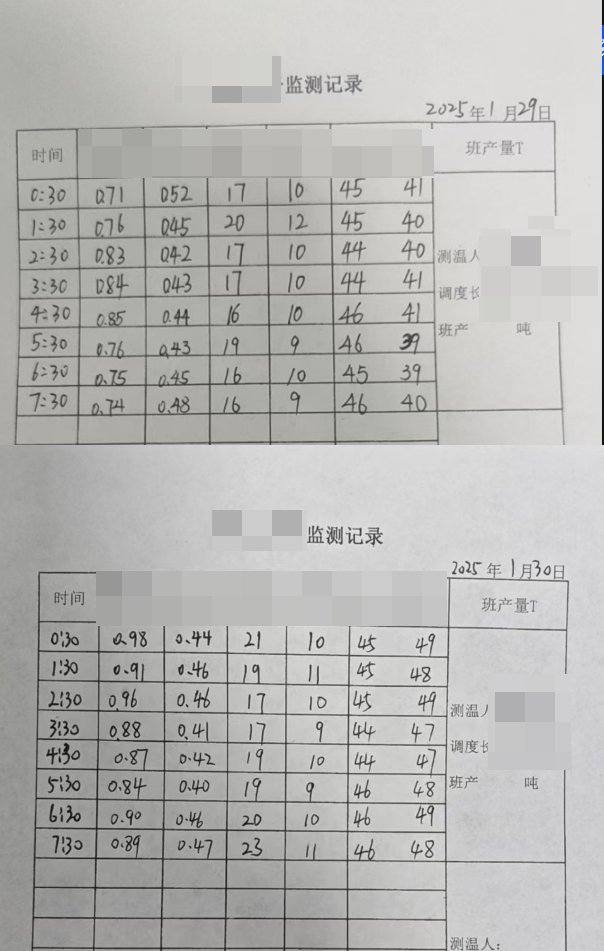 监测记录
2025年1月29日
时间 班产量T
0:30 0.71 0.52 17 10 45 41
1:30 0.76 0.45 20 12 45 40
2:30 0.83 0.42 17 10 44 40
测温人
3:30 0.84 0.43 17 10 44 41
调度长
4:30 0.85 0.44 16 10 46 41
班产 吨
5:30 0.76 0.43 19 9 46 39
6:30 0.75 0.45 16 10 45 39
7:30 0.74 0.48 16 9 46 40
监测记录
2025年1月30日
时间 班产量T
0:30 0.98 0.44 21 10 45 49
1:30 0.91 0.46 19 11 45 48
2:30 0.96 0.46 17 10 45 49
测温人
3:30 0.88 0.41 17 9 44 47
调度长
4:30 0.87 0.42 19 10 44 47
5:30 0.84 0.40 19 9 46 48
班产 吨
6:30 0.90 0.46 20 10 46 49
7:30 0.89 0.47 23 11 46 48
测温人: